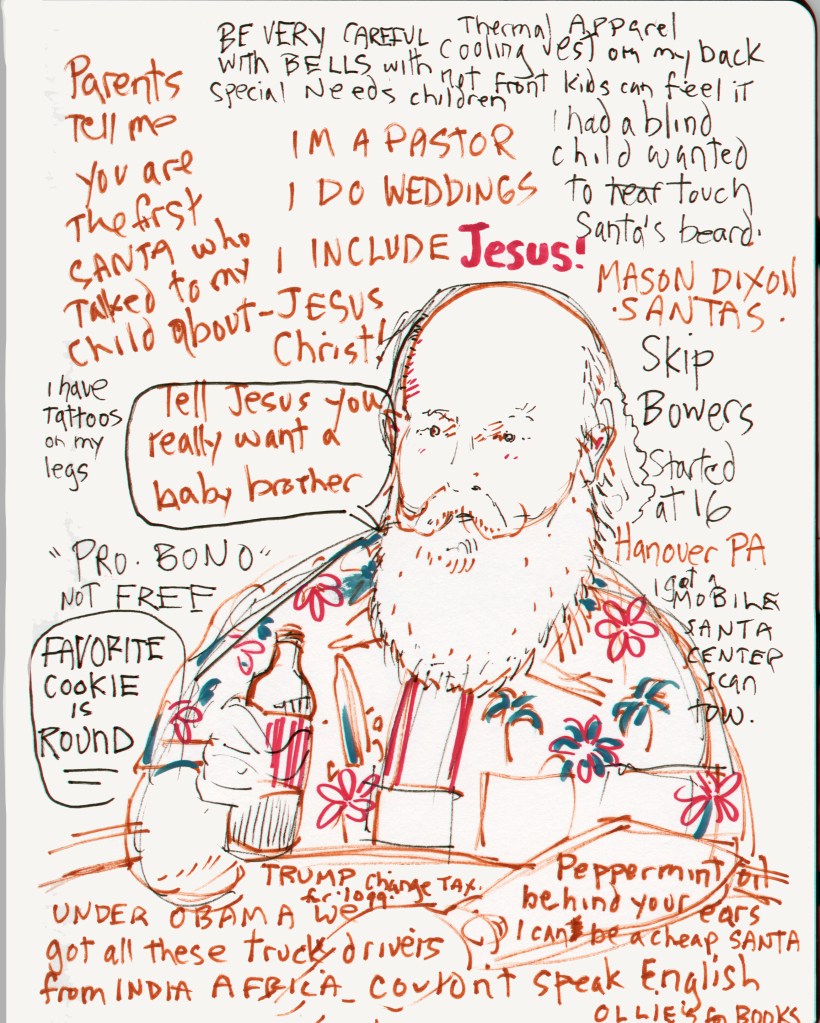 BE VERY CAREFUL
WITH BELLS with
special Needs children
Thermal Apparel
Cooling vest on my back
not front kids can feel it
I had a blind
child wanted
to touch
Santa's beard.
Parents
Tell me
you are
the first
SANTA who
Talked to my
child about-JESUS
Christ!
IM A PASTOR
I DO WEDDINGS
I INCLUDE Jesus!
MASON DIXON
·SANTAS.
Skip
Bowers
Started
at 16
Hanover PA
I got a
MOBILE
SANTA
CENTER
I can
tow.
I have
Tattoos
on my
legs
Tell Jesus you
really want a
baby brother
"PRO. BONO"
NOT FREE
FAVORITE
COOKIE
is
ROUND
TRUMP change TAX.
for 1099.
UNDER OBAMA we
got all these truck drivers
from INDIA AFRICA_ couldnt speak English
Peppermint oil
behind your ears
I can be a cheap SANTA
OLLIE's for BOOKS